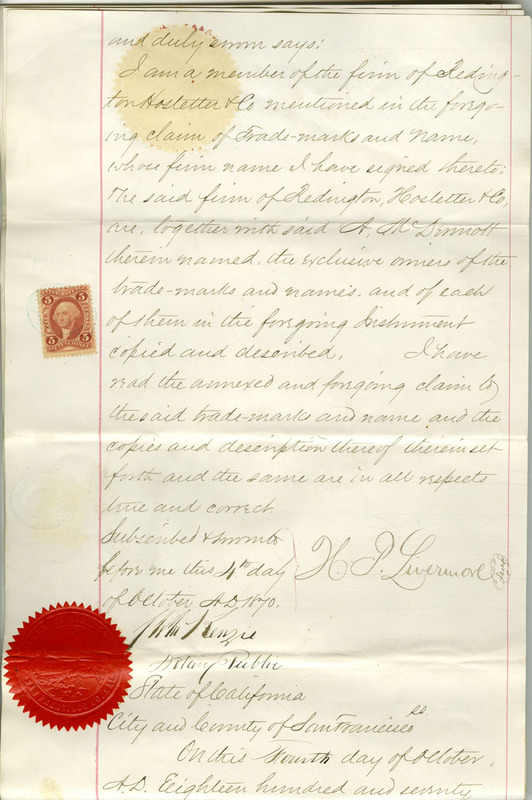 and duly sworn says:
I am a member of the firm of Reding-
ton Hostetter & Co mentioned in the forego-
ing claim of Trade-marks and Name,
whose firm name I have signed thereto:
The said firm of Redington, Hostetter & Co,
are, together with said A, McDermott
therein named, the exclusive owners of the
trade-marks and names, and of each
of them in the foregoing Instrument
copied and described. I have
read the annexed and foregoing claim to
the said trade-marks and name and the
copies and description thereof therein set
forth and the same are in all respects
true and correct.
Subscribed & sworn to
before me this 4th day
of October A.D. 1870.
H. P. Livermore
Kenzie
Notary Public
State of California
City and County of San Francisco ss
On this Fourth day of October,
A.D. Eighteen hundred and seventy
5 5
5 5